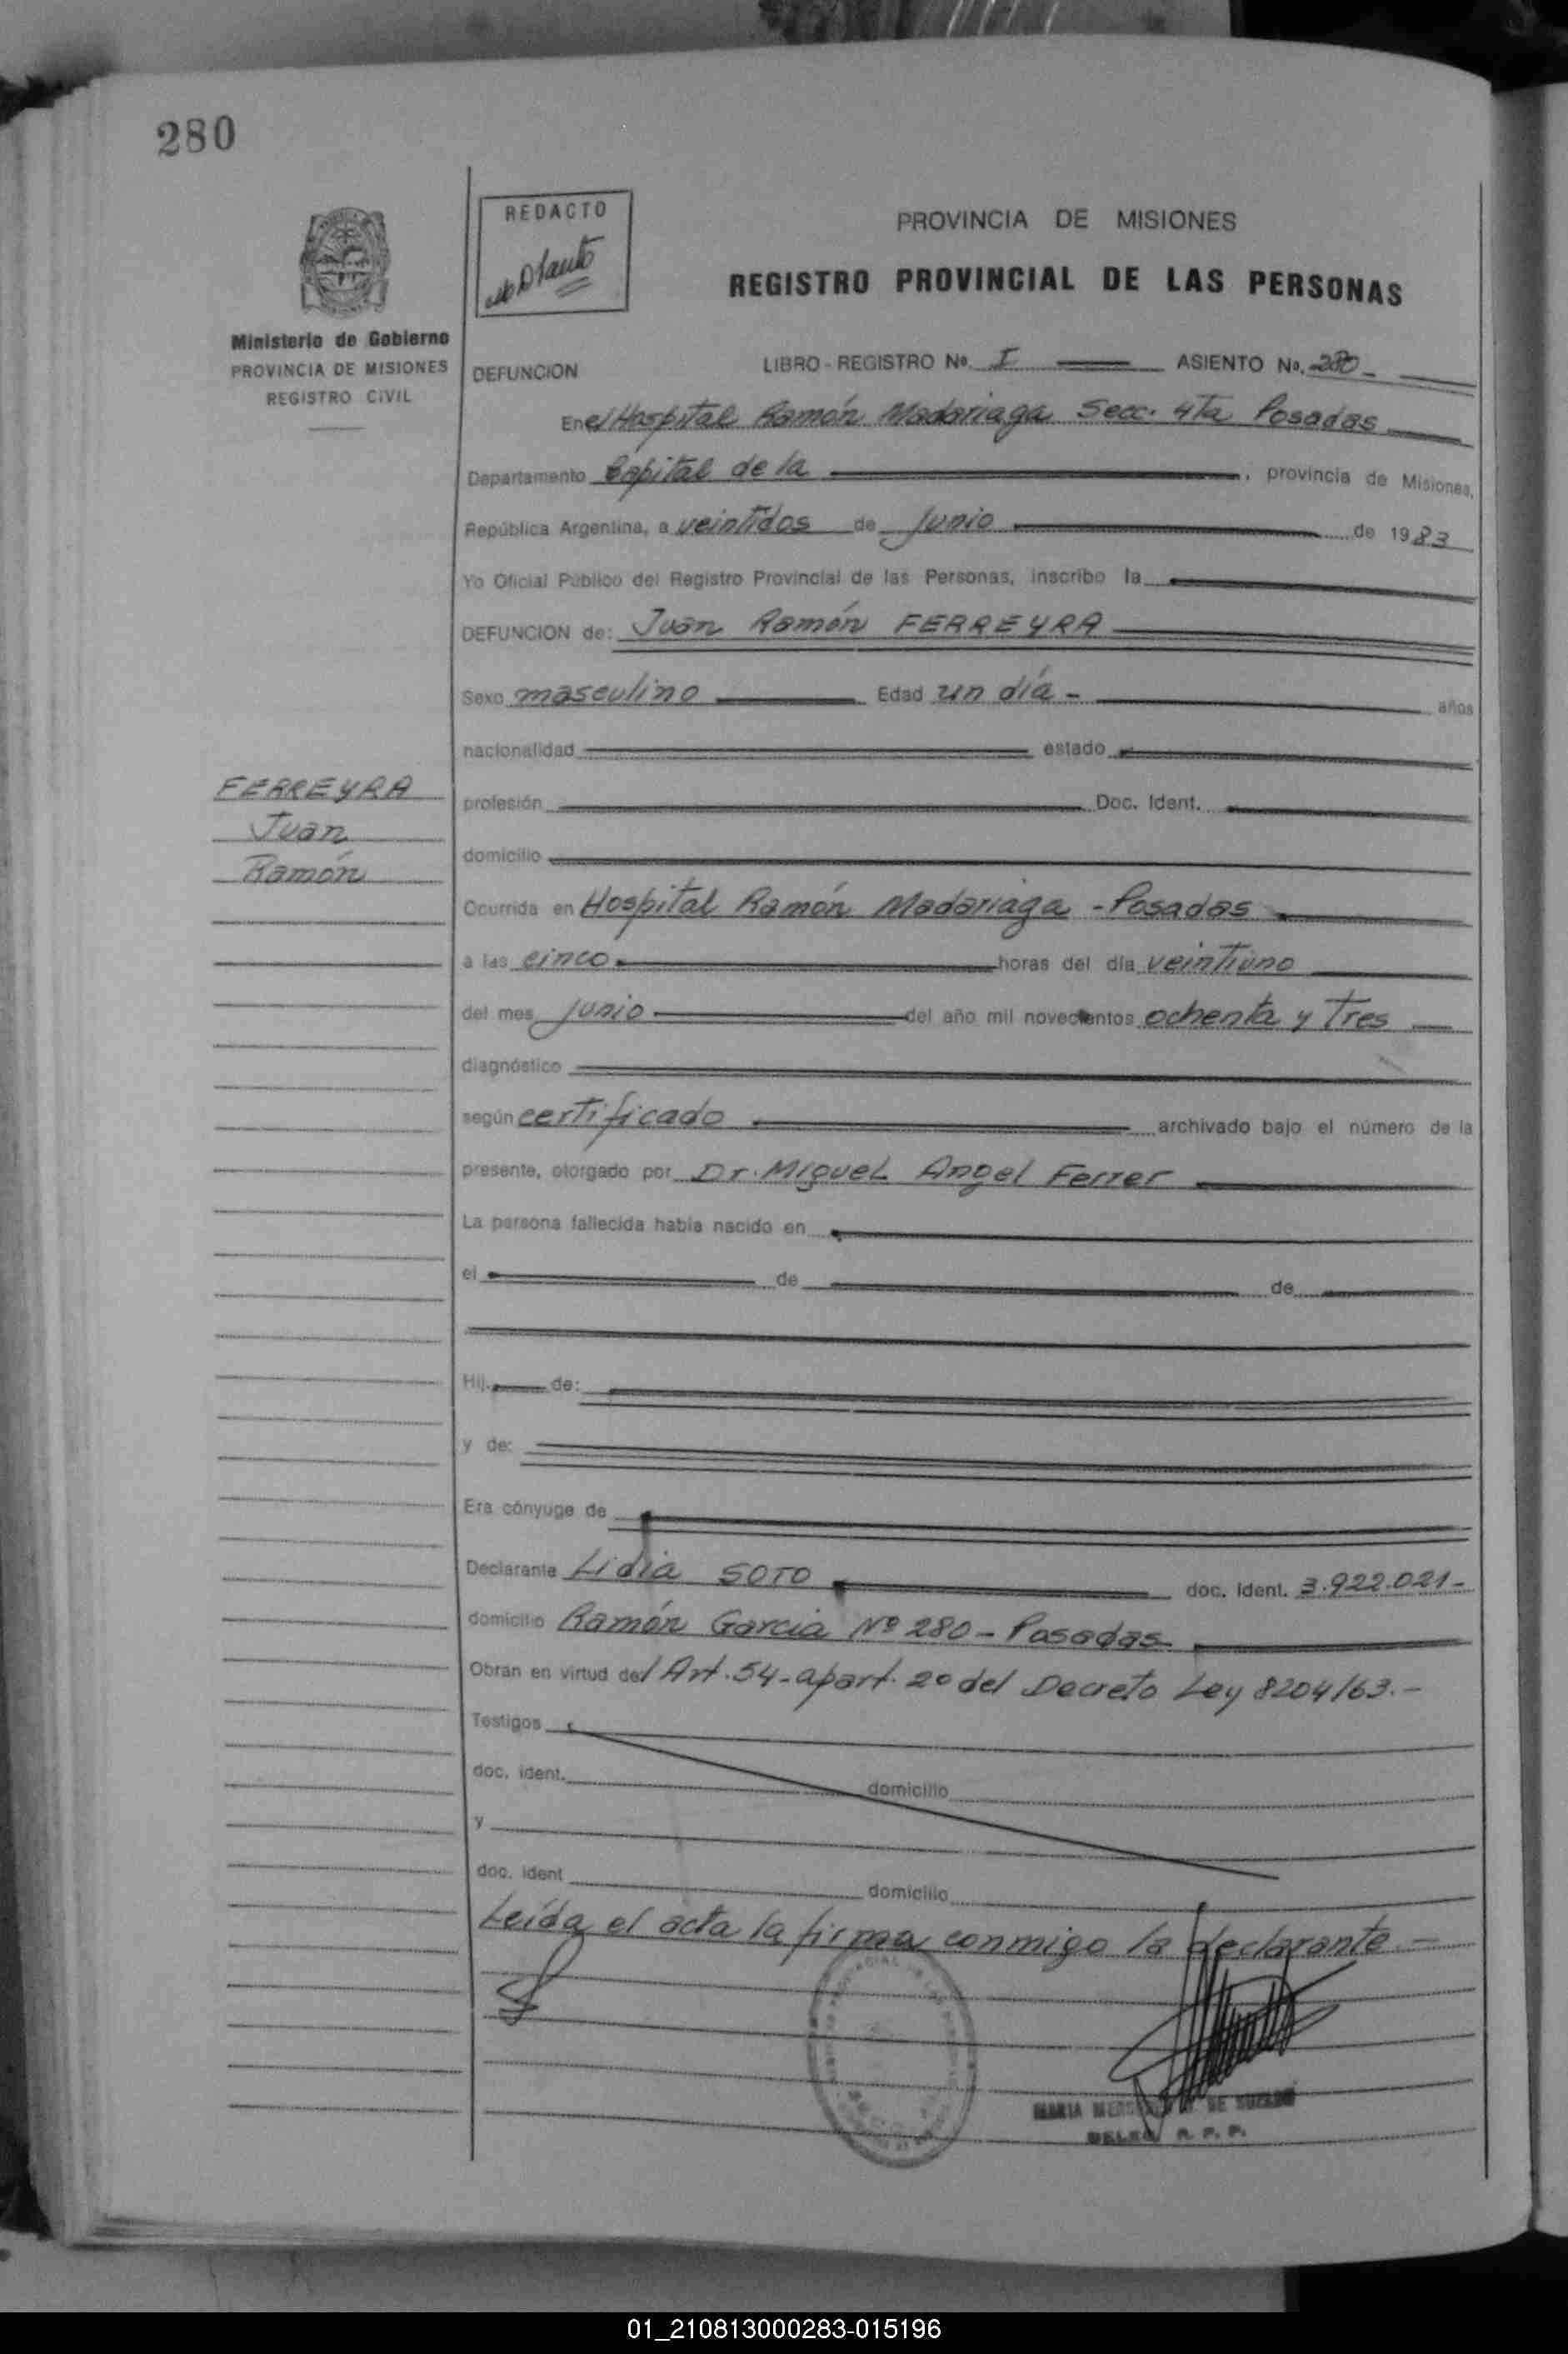 280
REDACTO
PROVINCIA DE MISIONES
REGISTRO PROVINCIAL DE LAS PERSONAS
Ministerio de Gobierno
PROVINCIA DE MISIONES
REGISTRO CIVIL
DEFUNCION LIBRO - REGISTRO No. I ASIENTO No. 280
En el Hospital Ramón Madariaga Secc. 4Ta Posadas
Departamento Capital de la, provincia de Misiones,
República Argentina, a veintidos de Junio de 1983
Yo Oficial Público del Registro Provincial de las Personas, inscribo la
DEFUNCION de: Juan Ramón FERREYRA
Sexo masculino Edad un día - años
nacionalidad estado
FERREYRA
Juan
Ramón
profesión Doc. Ident.
domicilio
Ocurrida en Hospital Ramón Madariaga - Posadas
a las cinco horas del día veintiuno
del mes Junio del año mil novecientos ochenta y Tres
diagnóstico
según certificado archivado bajo el número de la
presente, otorgado por Dr. Miguel Angel Ferrer
La persona fallecida había nacido en
el de de
Hij de:
y de:
Era cónyuge de
Declarante Lidia SOTO doc. Ident. 3.922.021-
domicilio Ramón Garcia Nº 280 - Posadas
Obran en virtud del Art. 54 - apart. 2º del Decreto Ley 8204/63.-
Testigos
doc. ident. domicilio
y
doc. ident domicilio
Leída el acta la firma conmigo la declarante.-
MARIA DE
R. P. P.
01_210813000283-015196